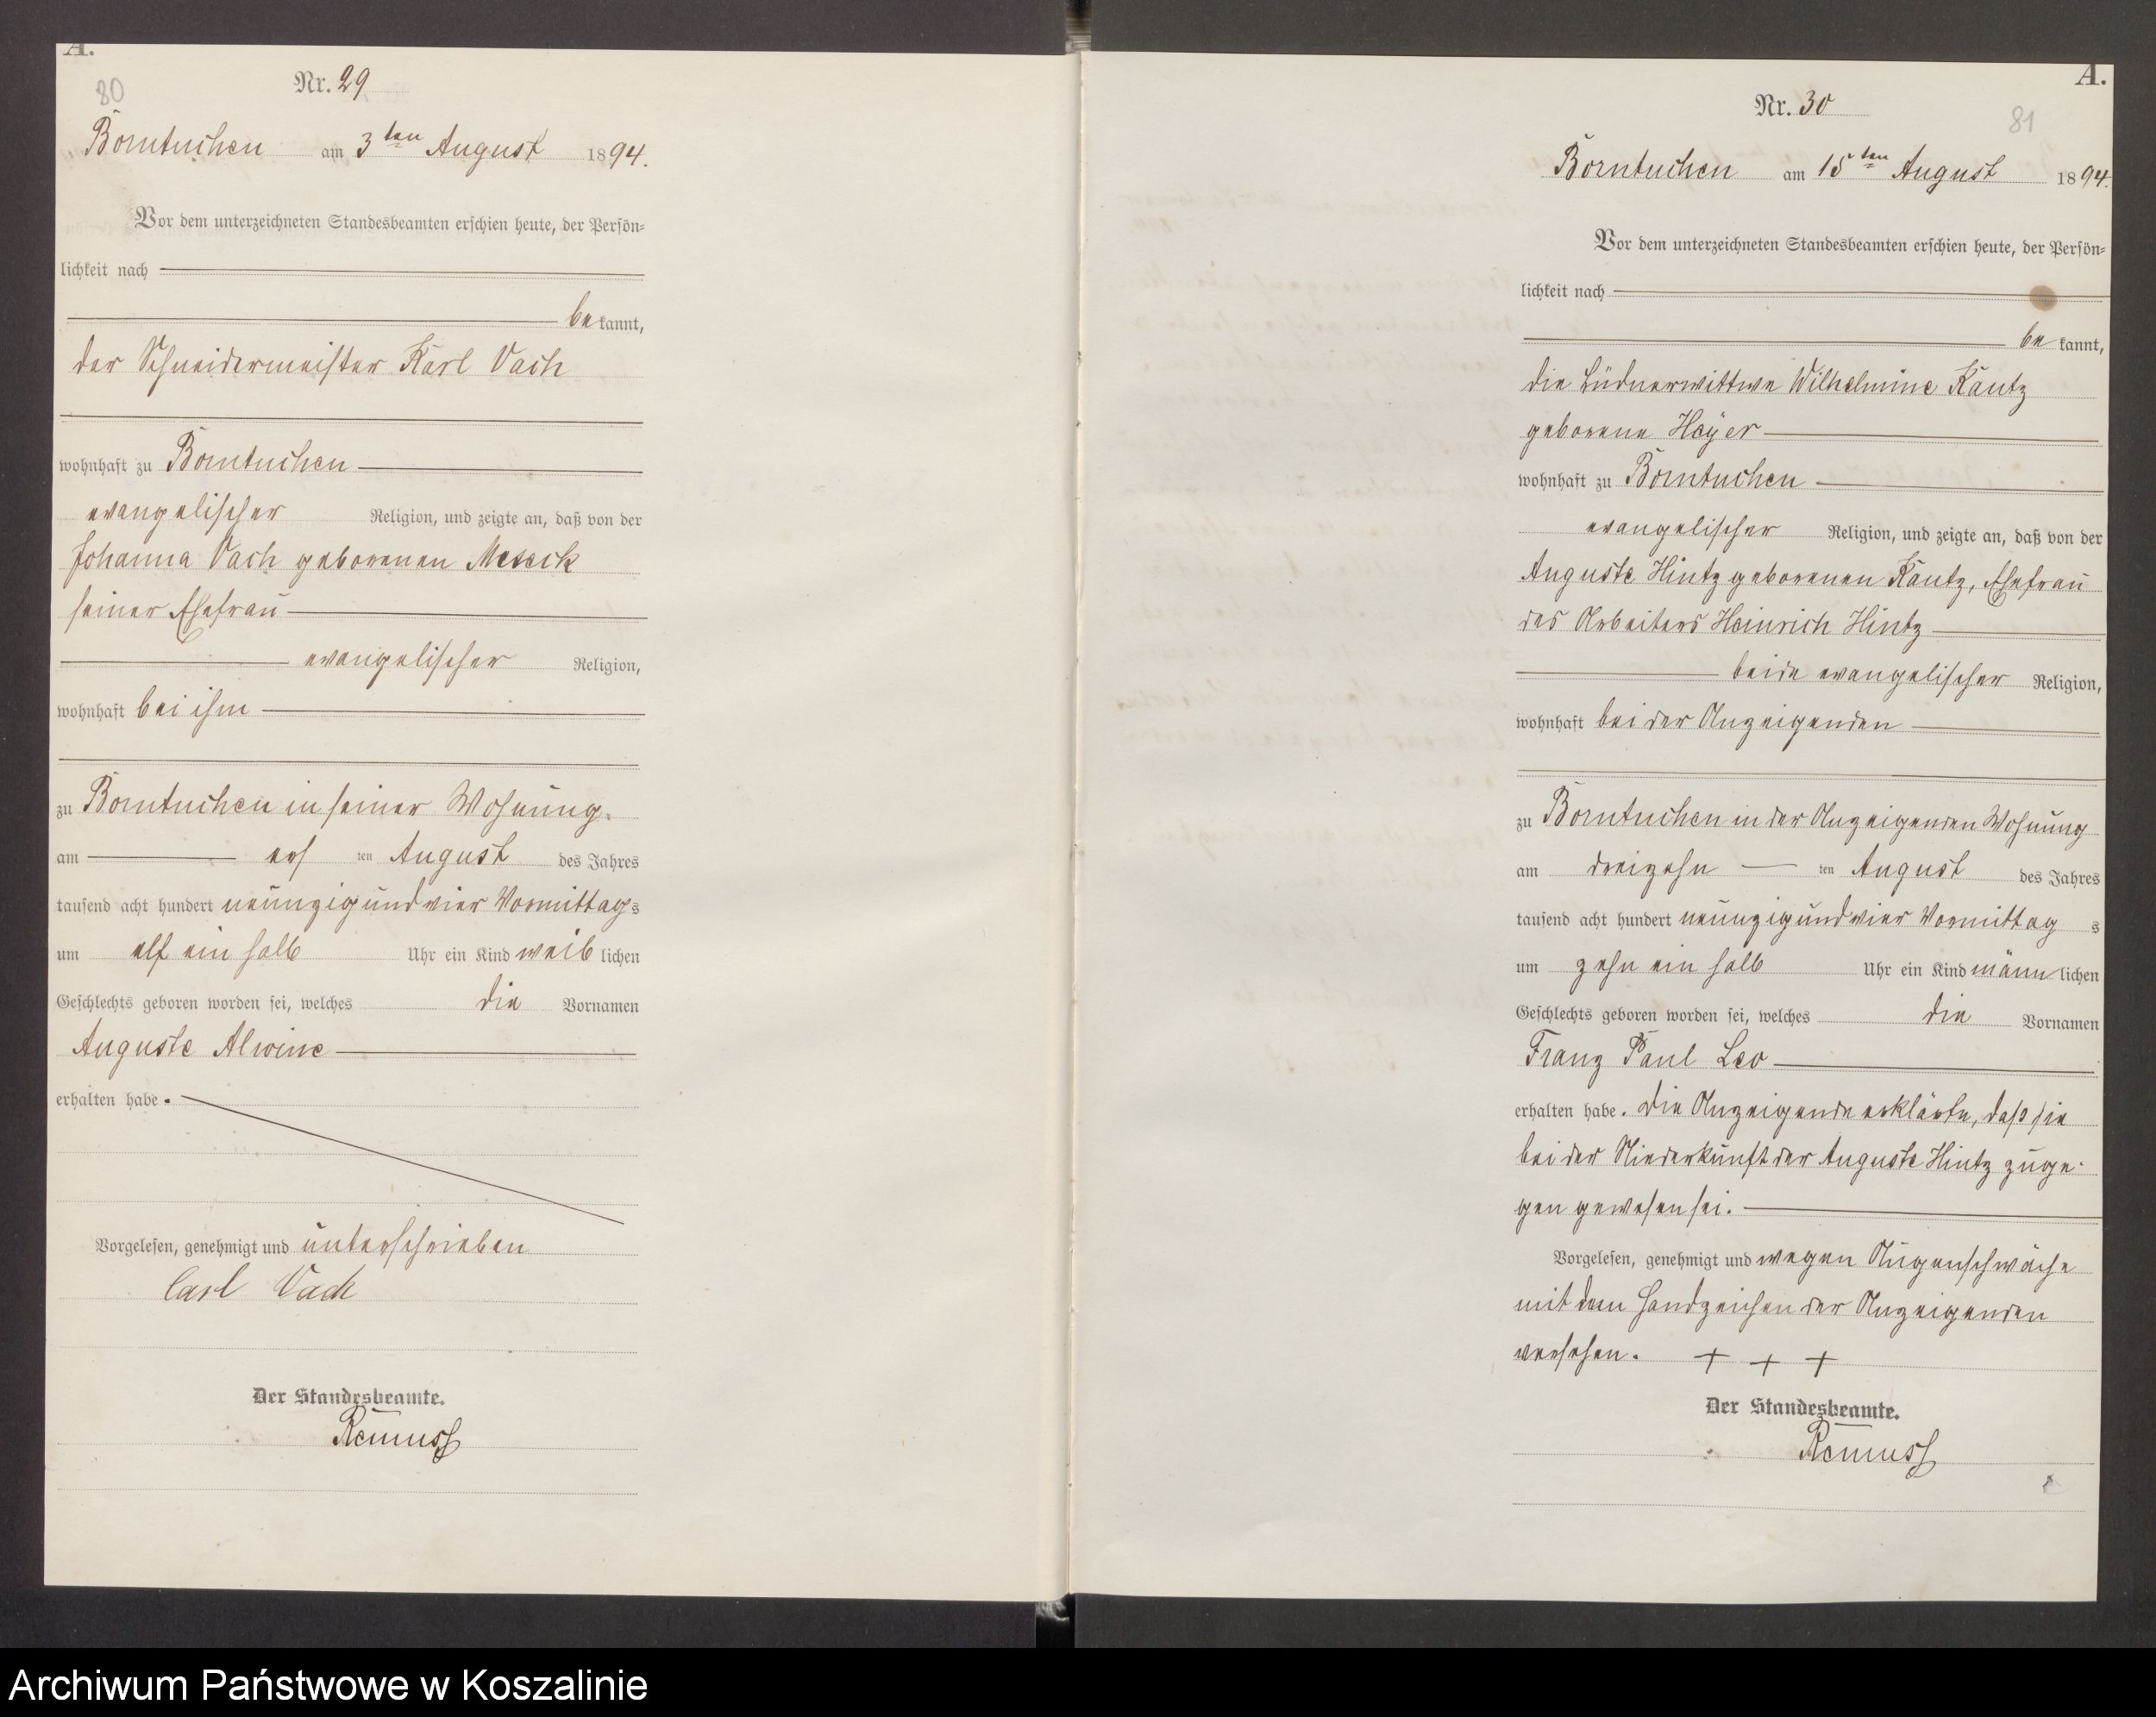 A.
80
Nr. 29
Borntuchen am 3ten August 1894.
Vor dem unterzeichneten Standesbeamten erschien heute, der Persön-
lichkeit nach
bekannt,
der Schneidermeister Karl Vach
wohnhaft zu Borntuchen
evangelischer Religion, und zeigte an, daß von der
Johanna Vach geborenen Meseck
seiner Ehefrau
evangelischer Religion,
wohnhaft bei ihm
zu Borntuchen in seiner Wohnung.
am ersten August des Jahres
tausend acht hundert neunzig und vier Vormittags
um elf ein halb Uhr ein Kind weiblichen
Geschlechts geboren worden sei, welches die Vornamen
Auguste Alwine
erhalten habe.
Vorgelesen, genehmigt und unterschrieben
Carl Vach
Der Standesbeamte.
Remuss
A.
81
Nr. 30
Borntuchen am 15ten August 1894.
Vor dem unterzeichneten Standesbeamten erschien heute, der Persön-
lichkeit nach
bekannt,
die Büdnerwittwe Wilhelmine Kautz
geborene Heyer
wohnhaft zu Borntuchen
evangelischer Religion, und zeigte an, daß von der
Auguste Hintz geborenen Kautz, Ehefrau
des Arbeiters Heinrich Hintz
beide evangelischer Religion,
wohnhaft bei der Anzeigenden
zu Borntuchen in der Anzeigenden Wohnung
am dreizehnten August des Jahres
tausend acht hundert neunzig und vier Vormittags
um zehn ein halb Uhr ein Kind männlichen
Geschlechts geboren worden sei, welches die Vornamen
Franz Paul Leo
erhalten habe. Die Anzeigende erklärte, daß sie
bei der Niederkunft der Auguste Hintz zuge-
gen gewesen sei.
Vorgelesen, genehmigt und wegen Augenschwäche
mit dem Handzeichen der Anzeigenden
versehen. + + +
Der Standesbeamte.
Remuss
Archiwum Państwowe w Koszalinie